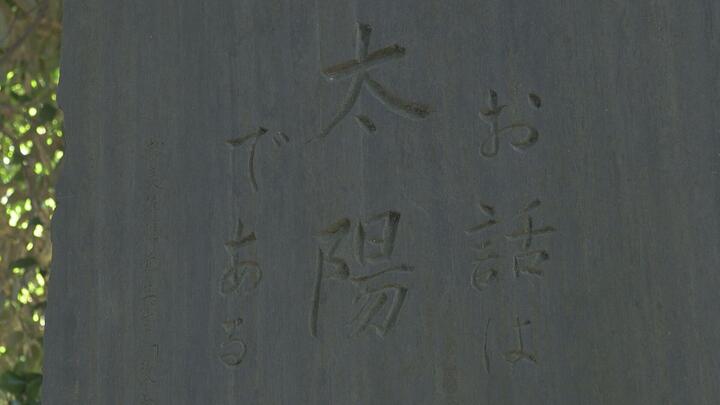 お話は
太陽
である